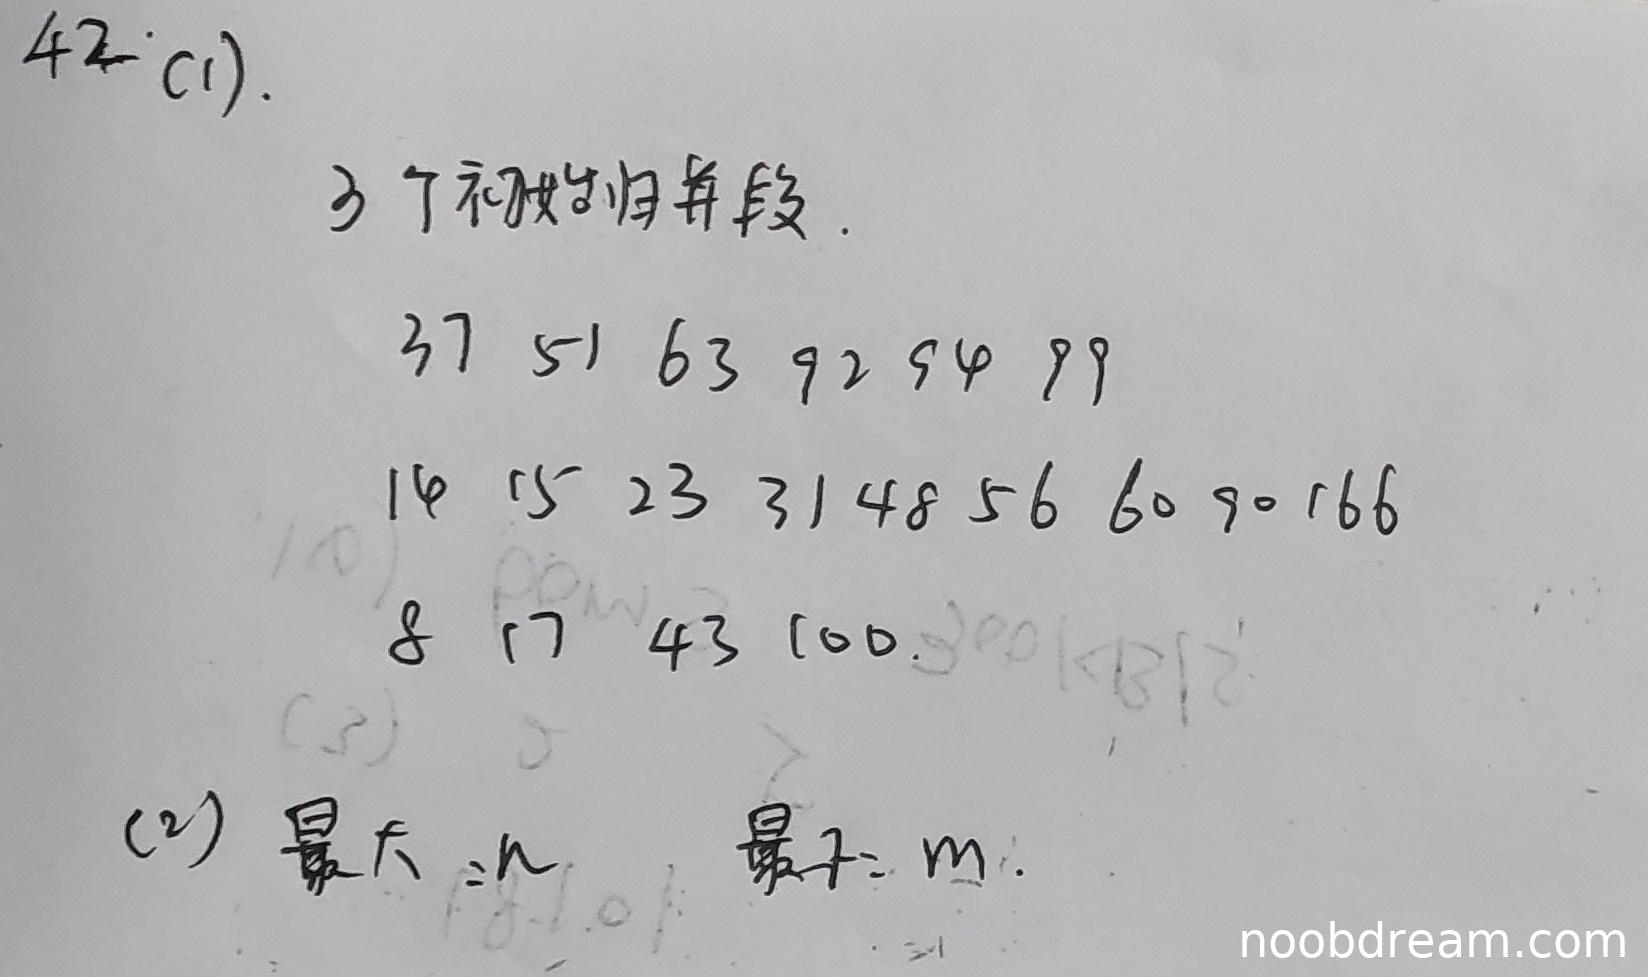 42.(1).
3个初始归并段.
37 51 63 92 94 99
14 15 23 31 48 56 60 90 166
8 17 43 100.
(2) 最大=n 最子=m.
noobdream.com